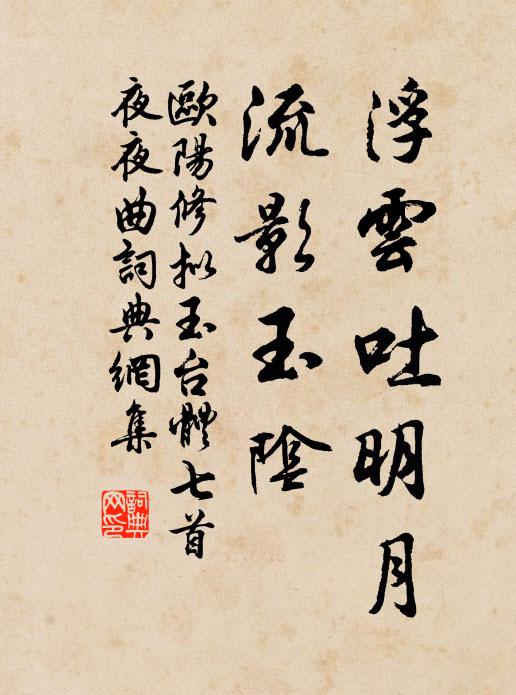 浮雲吐明月
流影玉陰
歐陽修拟玉台體七首
夜夜曲詞典網集
詞典网印